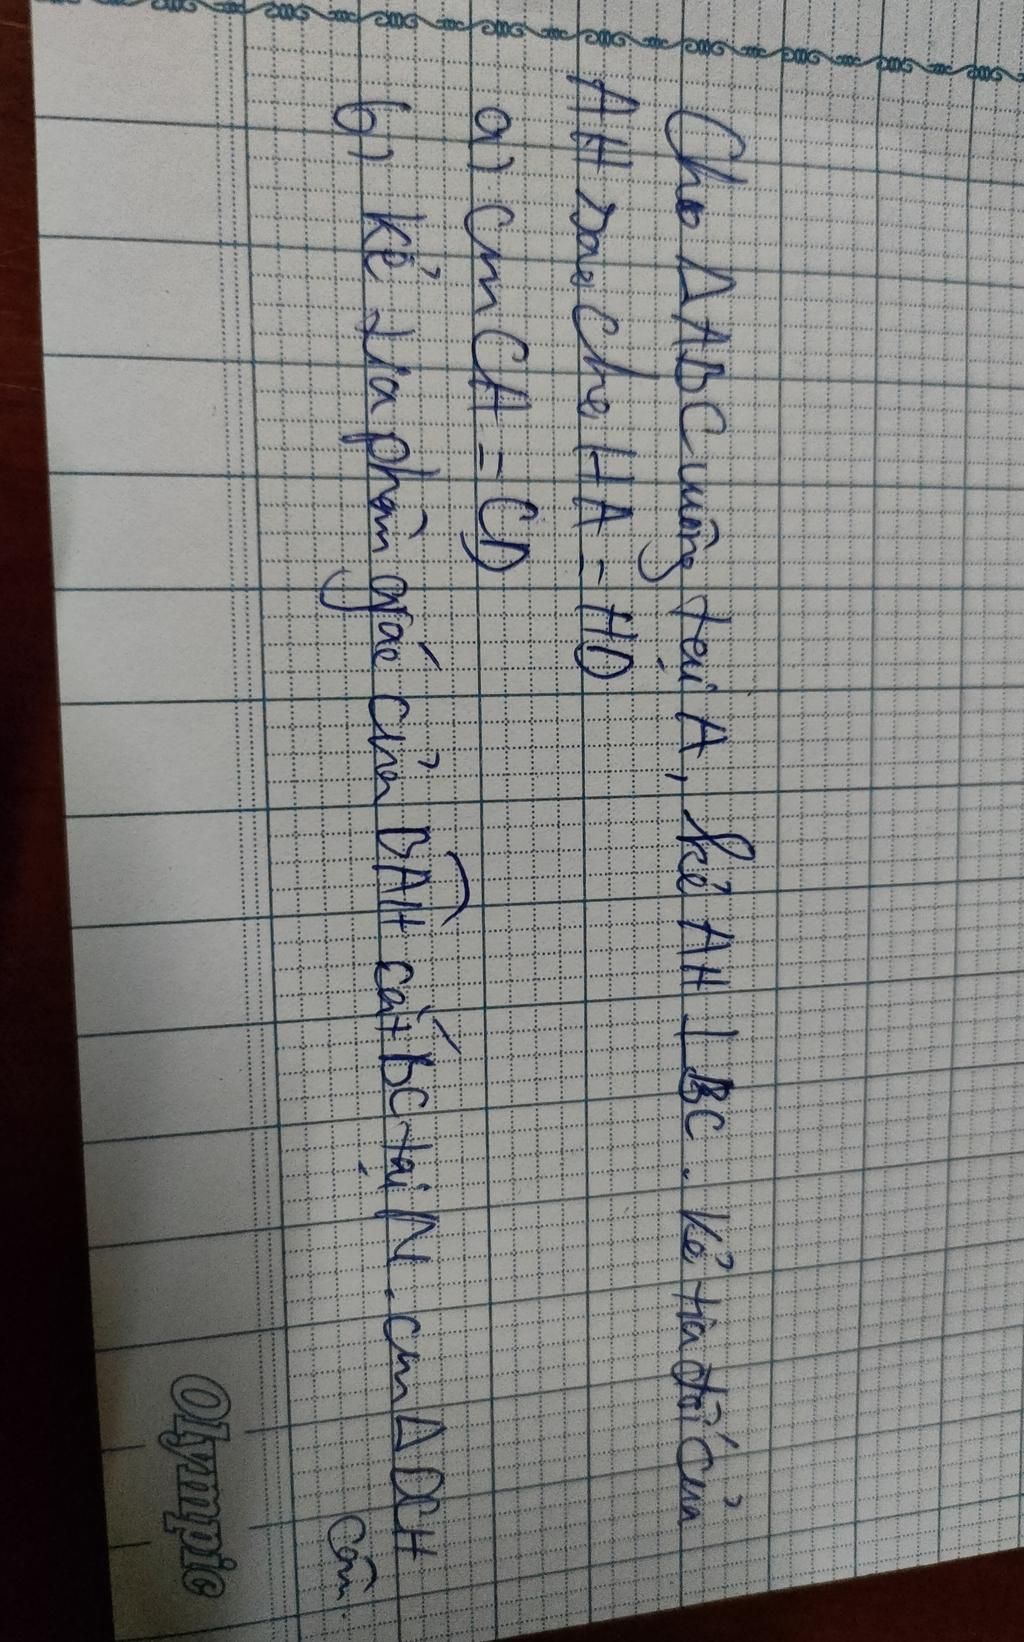 Cho ΔABC vuông tại A, kẻ AH ⊥ BC. Kẻ tia đối của
AH sao cho HA = HD
a) cm CA = CD
b) Kẻ tia phân giác của BAH cắt BC tại N. cm ΔDCH
cân.
Olympic